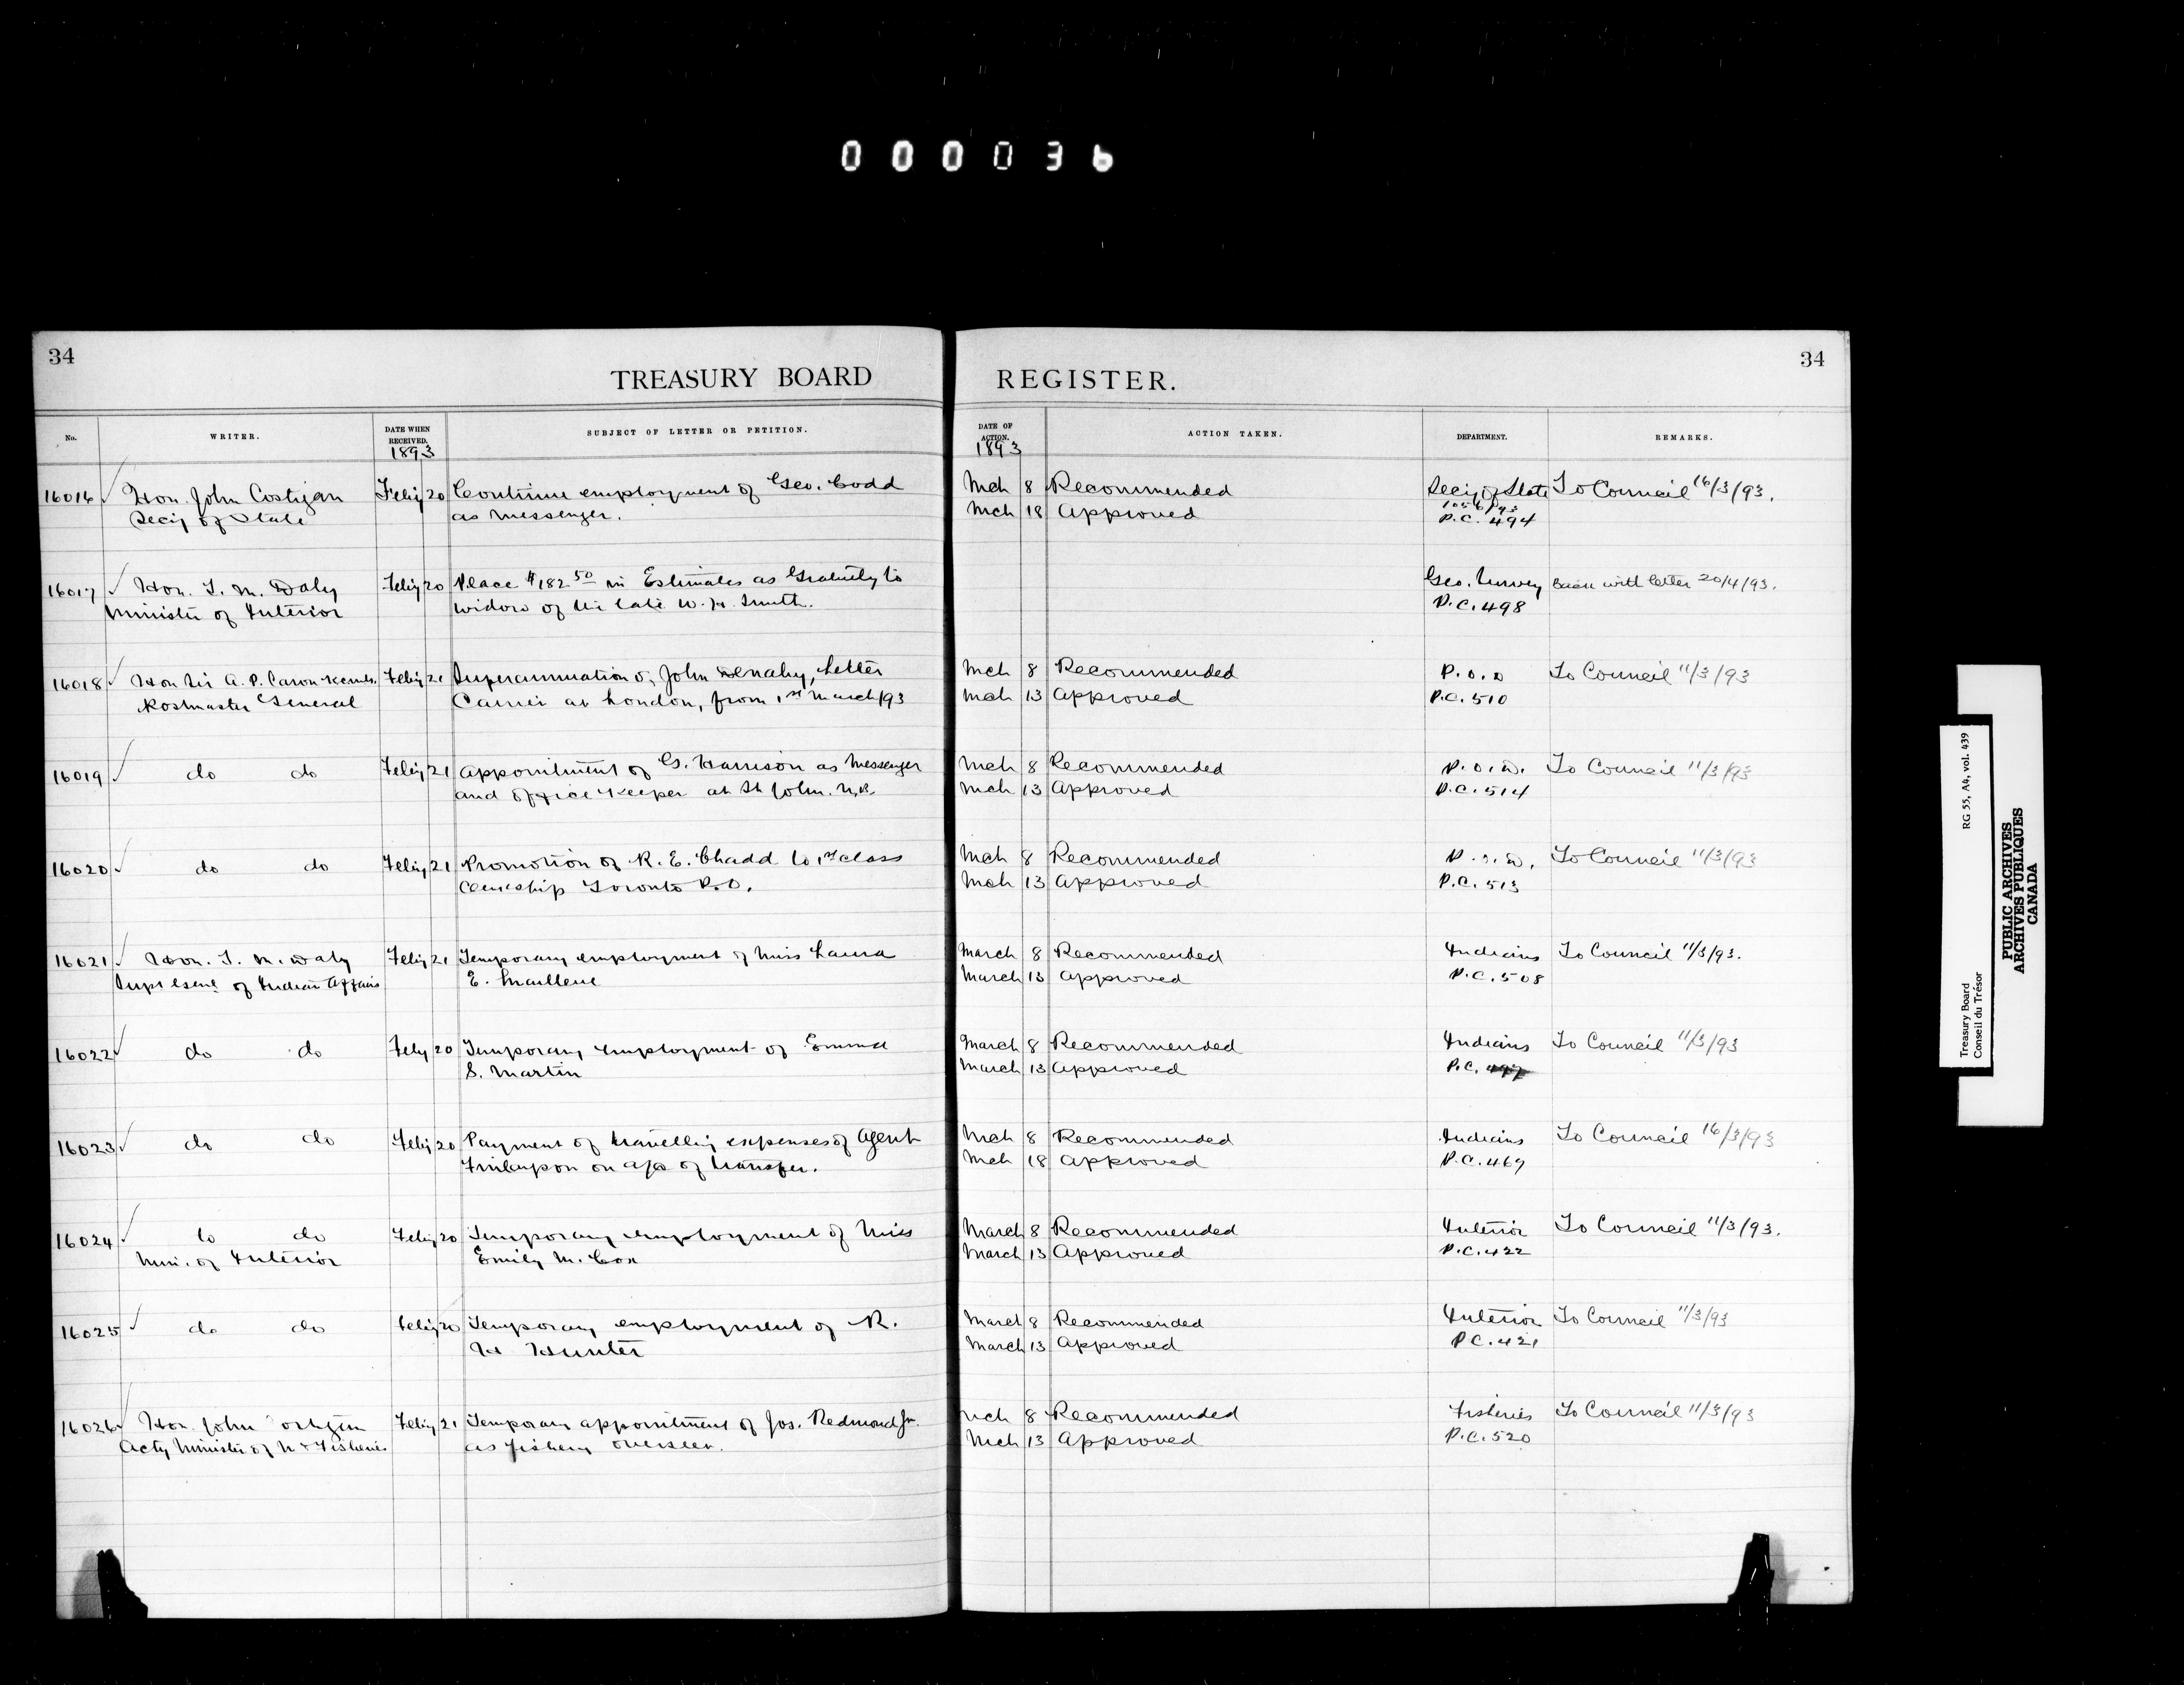 000036
34
TREASURY BOARD REGISTER.
34
No. WRITER. DATE WHEN RECEIVED. 1893 SUBJECT OF LETTER OR PETITION. DATE OF ACTION. 1893 ACTION TAKEN. DEPARTMENT. REMARKS.
16016 ✓ Hon. John Costigan Feby 20 Continue employment of Geo. Codd Mch 8 Recommended Secy of State To Council 16/3/93.
Secy of State as Messenger. Mch 18 Approved
P.C. 494
16017 ✓ Hon. T. M. Daly Feby 20 Place $182 50 in Estimates as Gratuity to Geo. Survey Back with letter 20/4/93.
Minister of Interior widow of the late W. H. Smith. P.C. 498
16018 ✓ Hon Sir A. P. Caron Feby 21 Superannuation of John Denahy, Letter Mch 8 Recommended P.O.D To Council 11/3/93
Postmaster General Carrier at London, from 1st March/93 Mch 13 Approved P.C. 510
16019 ✓ do do Feby 21 Appointment of G. Harrison as Messenger Mch 8 Recommended P.O.D. To Council 11/3/93
and office Keeper at St John. N.B. Mch 13 Approved P.C. 514
16020 ✓ do do Feby 21 Promotion of R. E. Chadd to 1st class Mch 8 Recommended P.O.D. To Council 11/3/93
Clerkship Toronto P.O. Mch 13 Approved P.C. 513
16021 ✓ Hon. T. M. Daly Feby 21 Temporary employment of Miss Laura March 8 Recommended Indians To Council 11/3/93.
Supt Genl of Indian Affairs E. March 13 Approved P.C. 508
16022 ✓ do do Feby 20 Temporary employment of Emma March 8 Recommended Indians To Council 11/3/93
S. Martin March 13 Approved P.C.
16023 ✓ do do Feby 20 Payment of travelling expenses of Agent Mch 8 Recommended Indians To Council 16/3/93
Finlayson on a/c of transfer. Mch 18 Approved P.C. 469
16024 ✓ do do Feby 20 Temporary employment of Miss March 8 Recommended Interior To Council 11/3/93.
Min. of Interior Emily M. Cox March 13 Approved P.C. 422
16025 ✓ do do Feby 20 Temporary employment of R. March 8 Recommended Interior To Council 11/3/93
H Hunter March 13 Approved P.C. 421
16026 ✓ Hon. John Costigan Feby 21 Temporary appointment of Jos. Redmond Jr. Mch 8 Recommended Fisheries To Council 11/3/93
Actg Minister of M & Fisheries as fishery overseer. Mch 13 Approved P.C. 520
Treasury Board RG 55, A4, vol. 439
Conseil du Trésor
PUBLIC ARCHIVES
ARCHIVES PUBLIQUES
CANADA